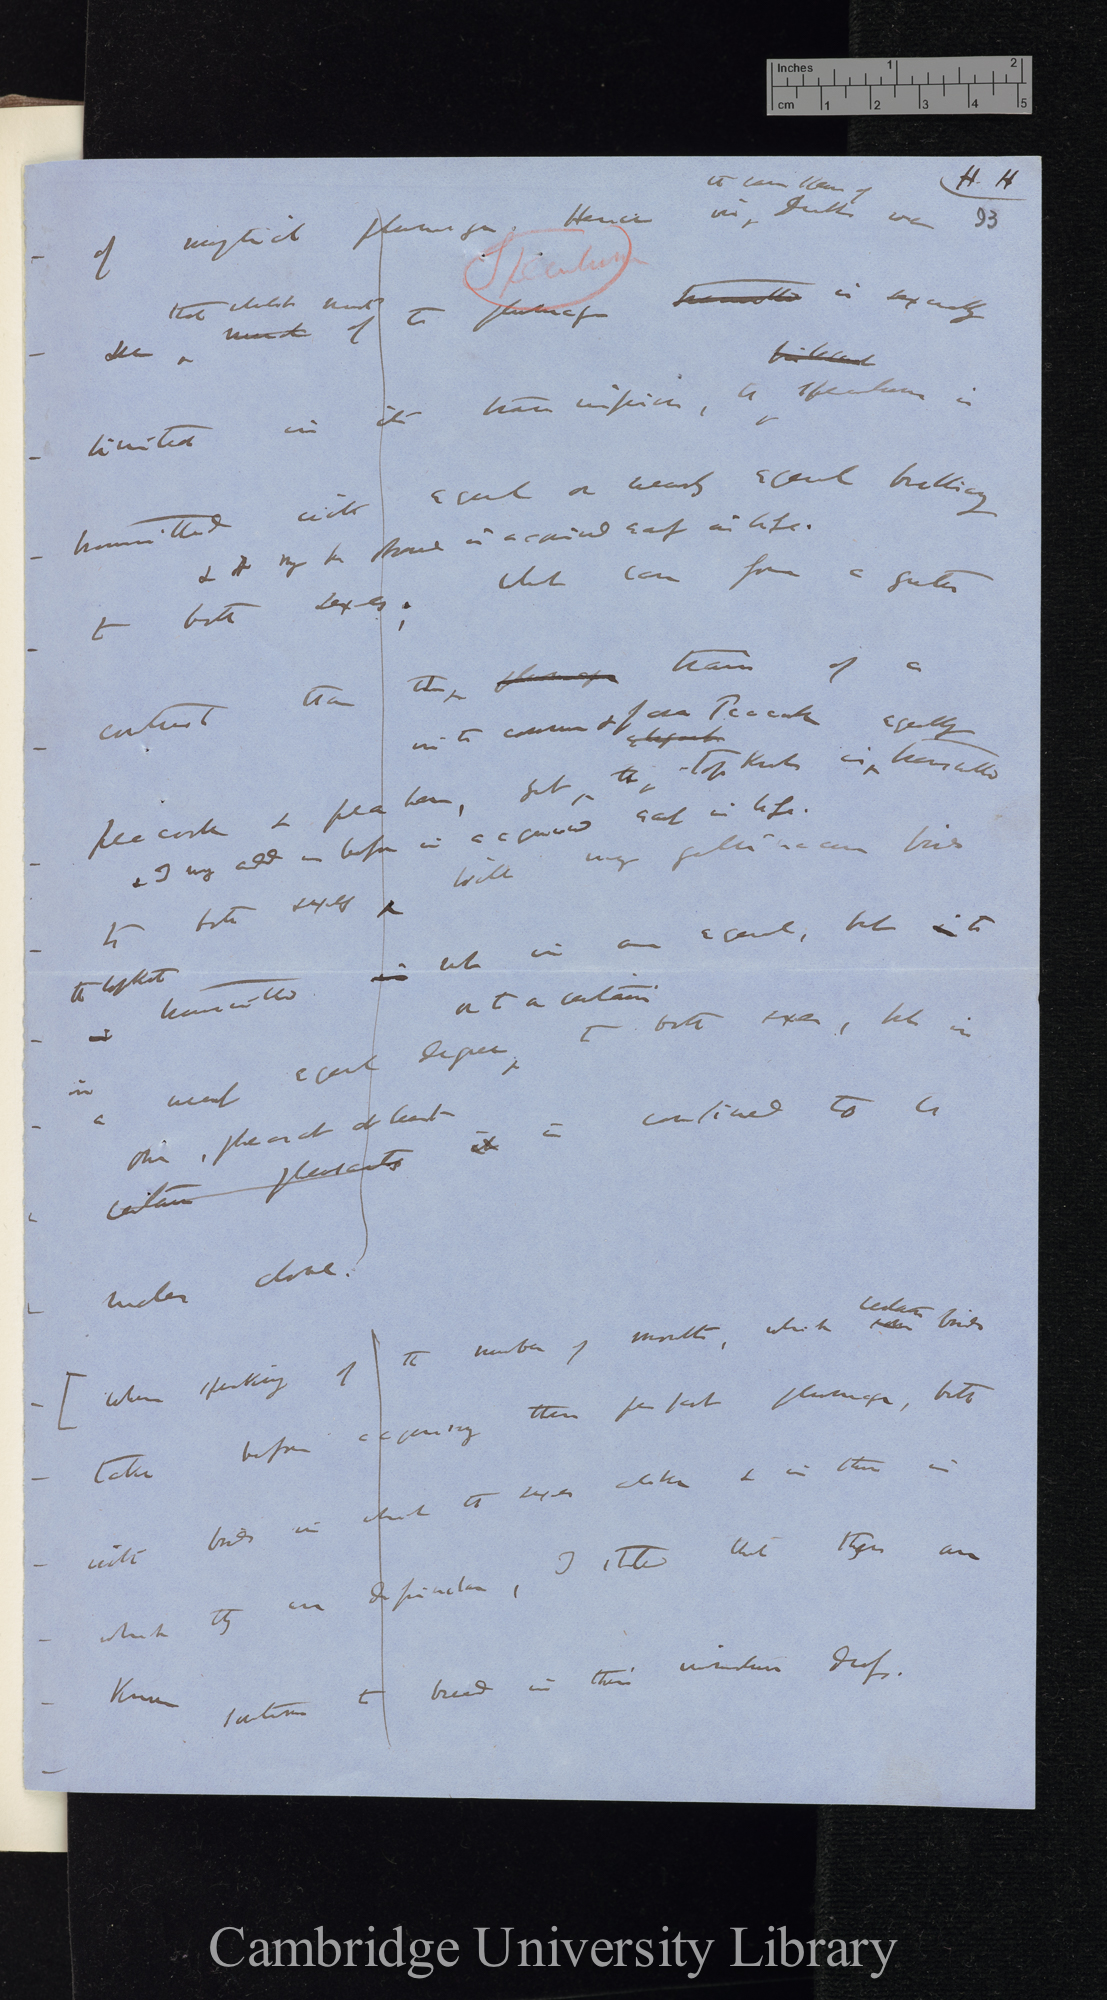 Inches 1 2
cm 1 2 3 4 5
H. H
93
the case then of
of nuptial plumage. Hence in Ducks we
Speculum
that whilst most
see much of the plumage transmitted is sexually
limited in its transmission, the speculum is
transmitted with equal or nearly equal brilliancy
& it may be is acquired early in life.
to both sexes; what can form a greater
contrast than the plumage train of a
in the common & Peacock equally
peacock & pea hen, yet the top knot is transmitted
& I may add as before is acquired early in life.
to both sexes with many gallinaceous birds
the topknot
is transmitted in an equal, but in the
or to a certain
in a equal degree, to both sexes, but in
one, pheasant at least
certain pheasants it is confined to the
males alone.
certain
[when speaking of the number of months, which some birds
take before acquiring their perfect plumage, both
with birds in which the sexes alike & in those in
which they are dissimilar, I stated that there are
known to breed in their immature dress.
Cambridge University Library